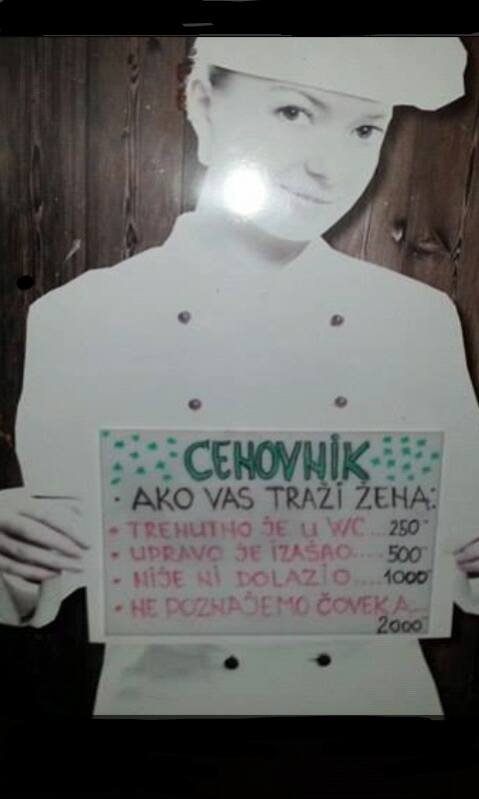 CENOVNIK
• AKO VAS TRAŽI ŽENA:
• TRENUTNO JE U WC....250
• UPRAVO JE IZAŠAO....500
• NIJE NI DOLAZIO....1000
• NE POZNAJEMO ČOVEKA...
2000